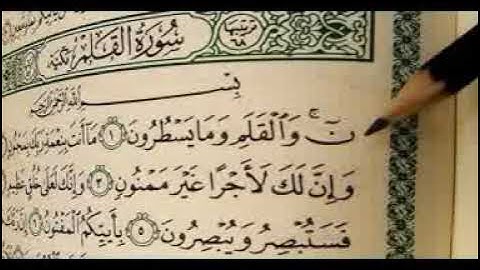 سُورَةُ القَلَمِ مكية ترتيبها ٦٨
بِسْمِ اللهِ الرَّحْمَٰنِ الرَّحِيمِ
نٓ ۚ وَالْقَلَمِ وَمَا يَسْطُرُونَ ﴿١﴾ مَا أَنتَ بِنِعْمَةِ رَبِّكَ بِمَجْنُونٍ
وَإِنَّ لَكَ لَأَجْرًا غَيْرَ مَمْنُونٍ ﴿٣﴾ وَإِنَّكَ لَعَلَىٰ خُلُقٍ عَظِيمٍ
فَسَتُبْصِرُ وَيُبْصِرُونَ ﴿٥﴾ بِأَييِّكُمُ الْمَفْتُونُ ﴿٦﴾ إِنَّ